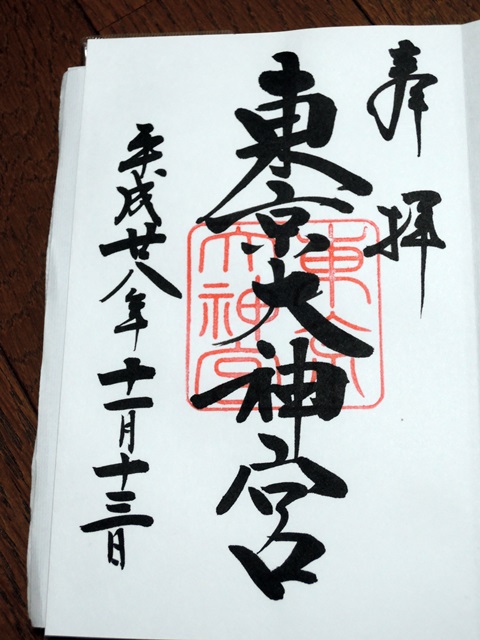 奉拝
東京大神宮
東京大神宮
平成廿八年十一月十三日